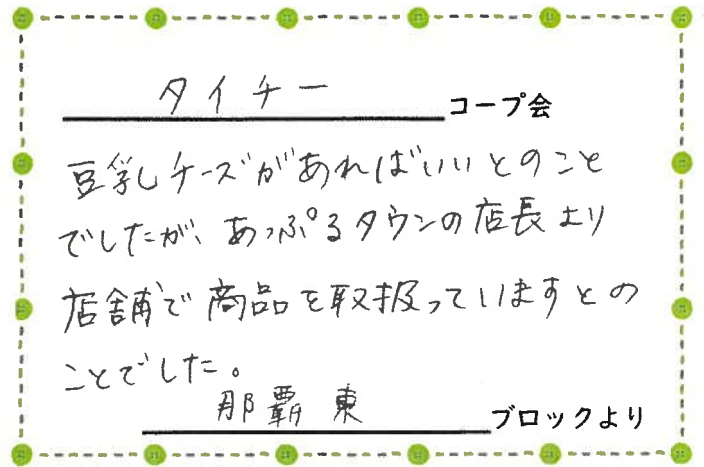 タイチー コープ会
豆乳チーズがあればいいとのこと
でしたが、あっぷるタウンの店長より
店舗で商品を取扱っていますとの
ことでした。
那覇東 ブロックより